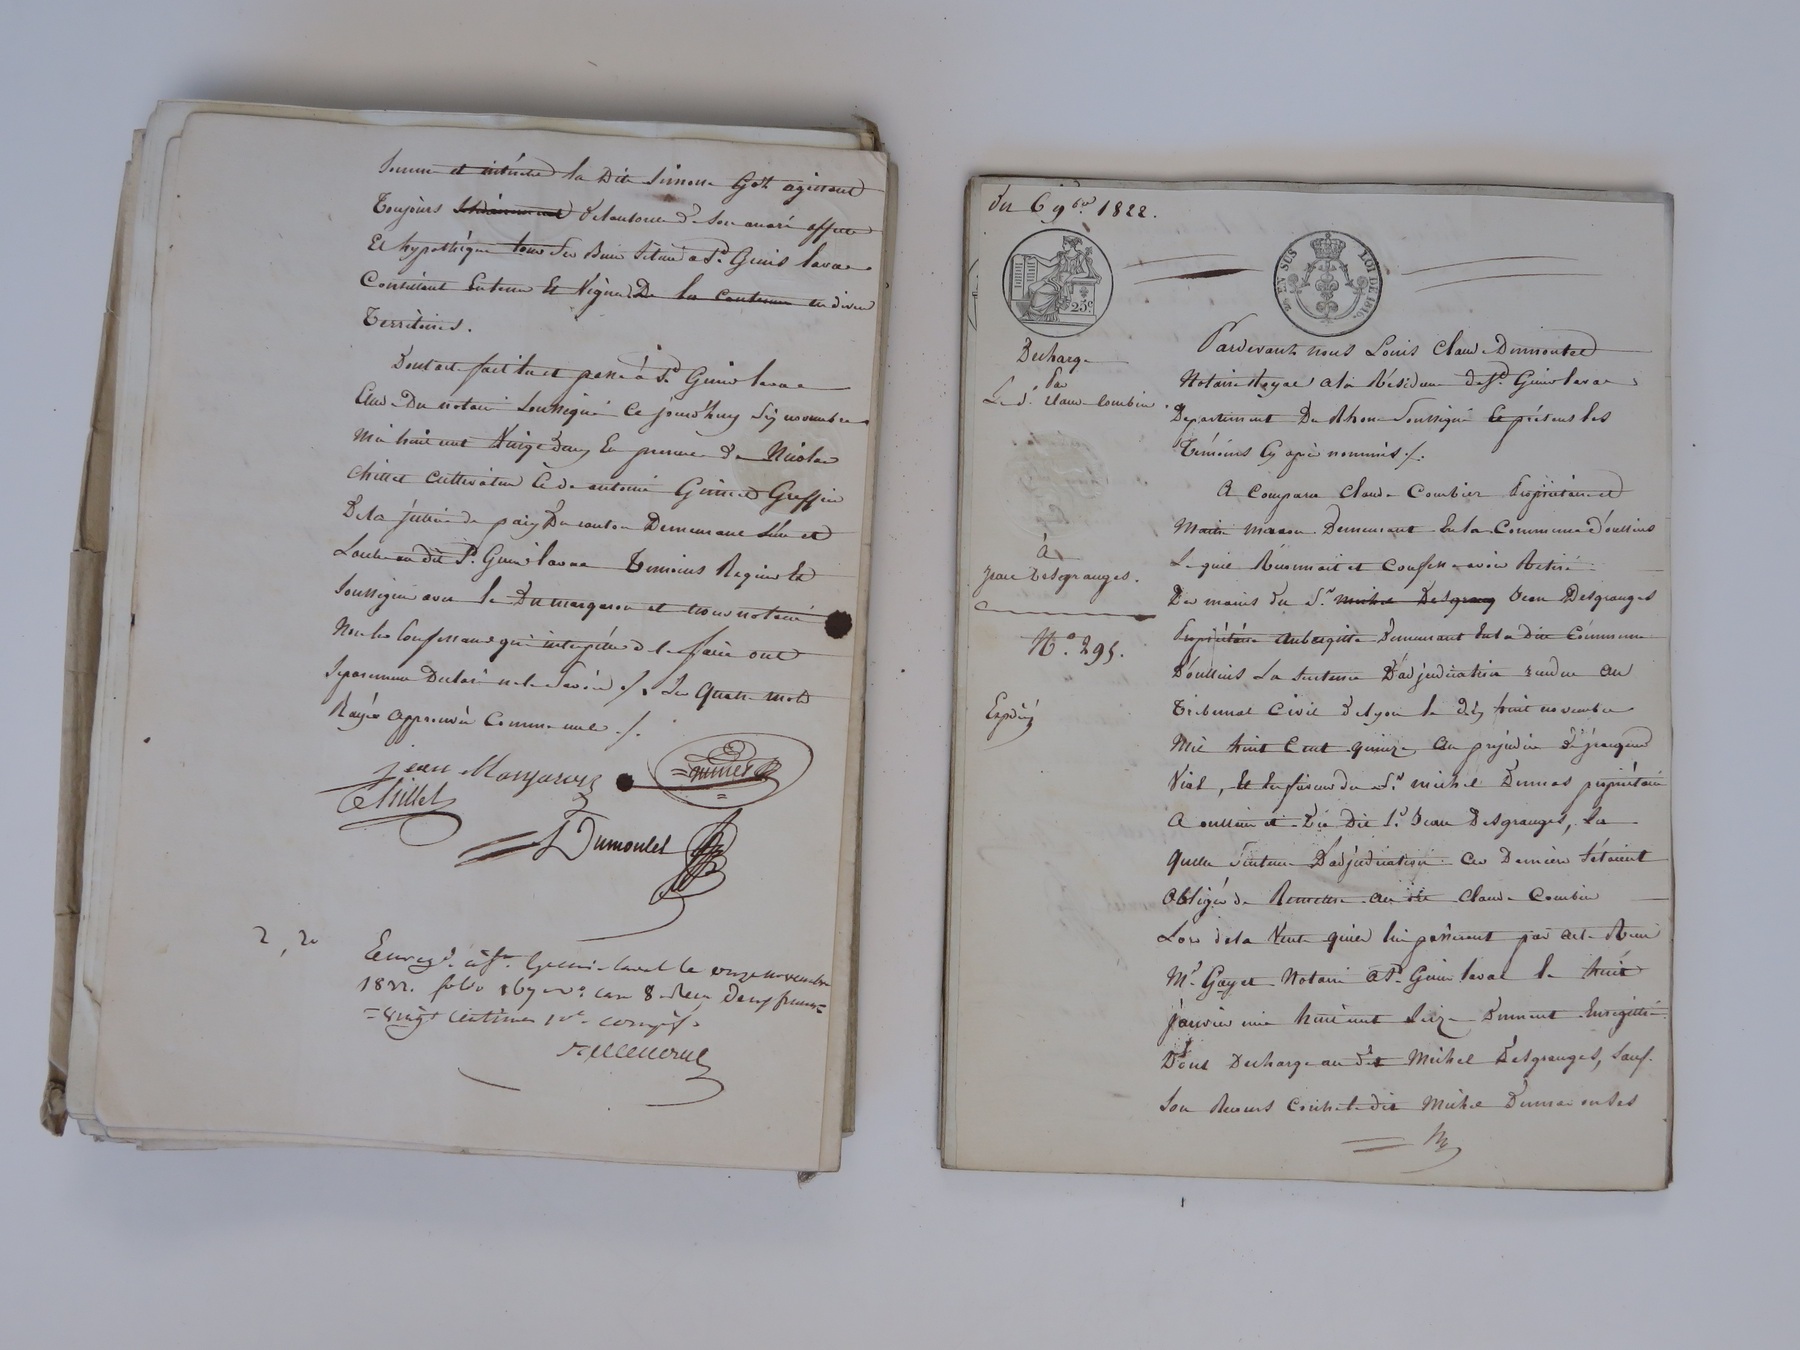 Somme et intérêts la dite Simone Got agissant
Toujours solidairement de lautorité de son mari affecte
Et hypothéque tous ses Biens Situé a St. Genis laval
Consistant En terre Et Vigne De la contenue en divers
Territoires.
Dont acte fait lu et passé à St. Genis laval
Etude Du notaire Soussigné Ce jourd'huy Six novembre
Mil huit cent Vingt Deux, En presence de Nicolas
Chillet cultivateur & de antoine Grimet Greffier
De la justice de paix Du canton Demeurant
au dit St. Genis laval Temoins Requis Et
Soussigné avec le Dit margaron et nous notaire
Non la Confessante qui interpellée de le faire ont
Separement Declaré ne le Savoir /. Les quatre mots
Rayés approuvés Comme nuls ./.
jean Margaron
Grimet
Chillet
Dumoulet
2, 20
Enregé. à St. Genis-laval le onze novembre
1822. folio 167 vo. case 8. Reçu deux francs
vingt centimes 10e. compris.
du 6 9bre 1822.
25c
EN SUS
LOI DE 1816.
Decharge
Par
Le Sr. Claude Combier.
à
Jean Desgranges.
No. 295.
Expédié
Pardevant nous Louis Claude Dumoulet
Notaire Royal a la Résidence de St. Genis laval
Departement Du Rhone Soussigné Et présens les
Témoins Cy après nommés /.
A Comparu Claude Combier Propriétaire et
Maitre macon Demeurant En la Commune d'oullins
Lequel Reconnait et Confesse avoir Retiré
Des mains du Sr. Michel Desgrang Jean Desgranges
Propriétaire Aubergiste Demeurant En la dite Commune
D'oullins La Sentence D'adjudication rendue au
Tribunal Civil de Lyon le dix huit novembre
Mil huit Cent quinze, au prejudice de
Vial, Et En faveur du Sr. michel Dumas propriétaire
A oullins et Du Dit Sr. Jean Desgranges, La
quelle Sentence D'adjudication Ces Derniers S'étaient
Obligés de Remettre au dit Claude Combier
Lors de la Vente qu'ils lui passèrent par acte Reçu
Me. Gayet Notaire A St. Genis laval le huit
janvier mil huit cent Seize Dument Enregistré
Dont Decharge au dit Michel Desgranges, Sauf
Son Recours Contre le dit Michel Dumas ou Ses